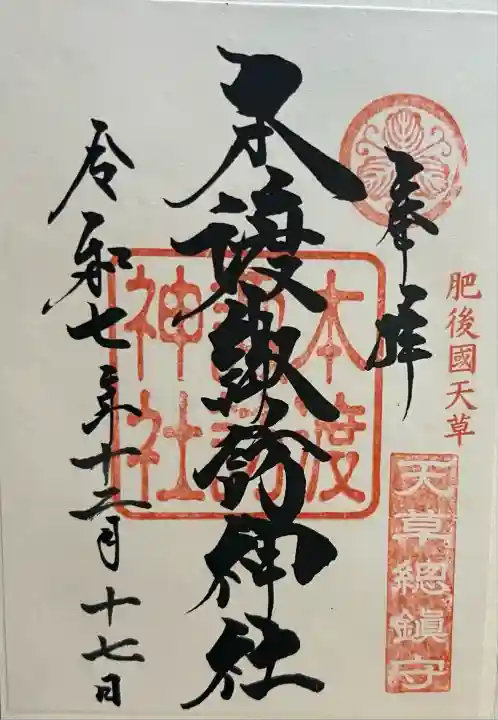 奉拝
肥後國天草
天草總鎮守
本渡諏訪神社
本渡
諏訪
神社
令和七年十二月十七日